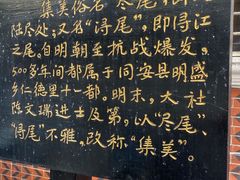 集美俗名“尽尾”,即
陆尽处;又名“浔尾”,即浔江
之尾。自明朝至抗战爆发,
500多年间都属于同安县明盛
乡仁德里十一都。明末,大社
陈文瑞进士及第,以“尽尾”、
“浔尾”不雅,改称“集美”。